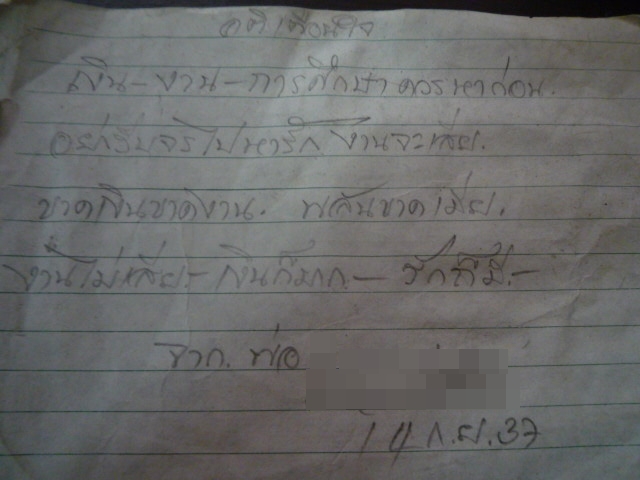 คติเตือนใจ
เงิน-งาน-การศึกษา ควรหาก่อน.
อย่ารีบจรไปหารัก งานจะเสีย.
ขาดเงินขาดงาน. พลันขาดเมีย.
งานไม่เสีย.- เงินก็มาก.- รักก็มี.-
จาก. พ่อ
14 ก.ย. 37